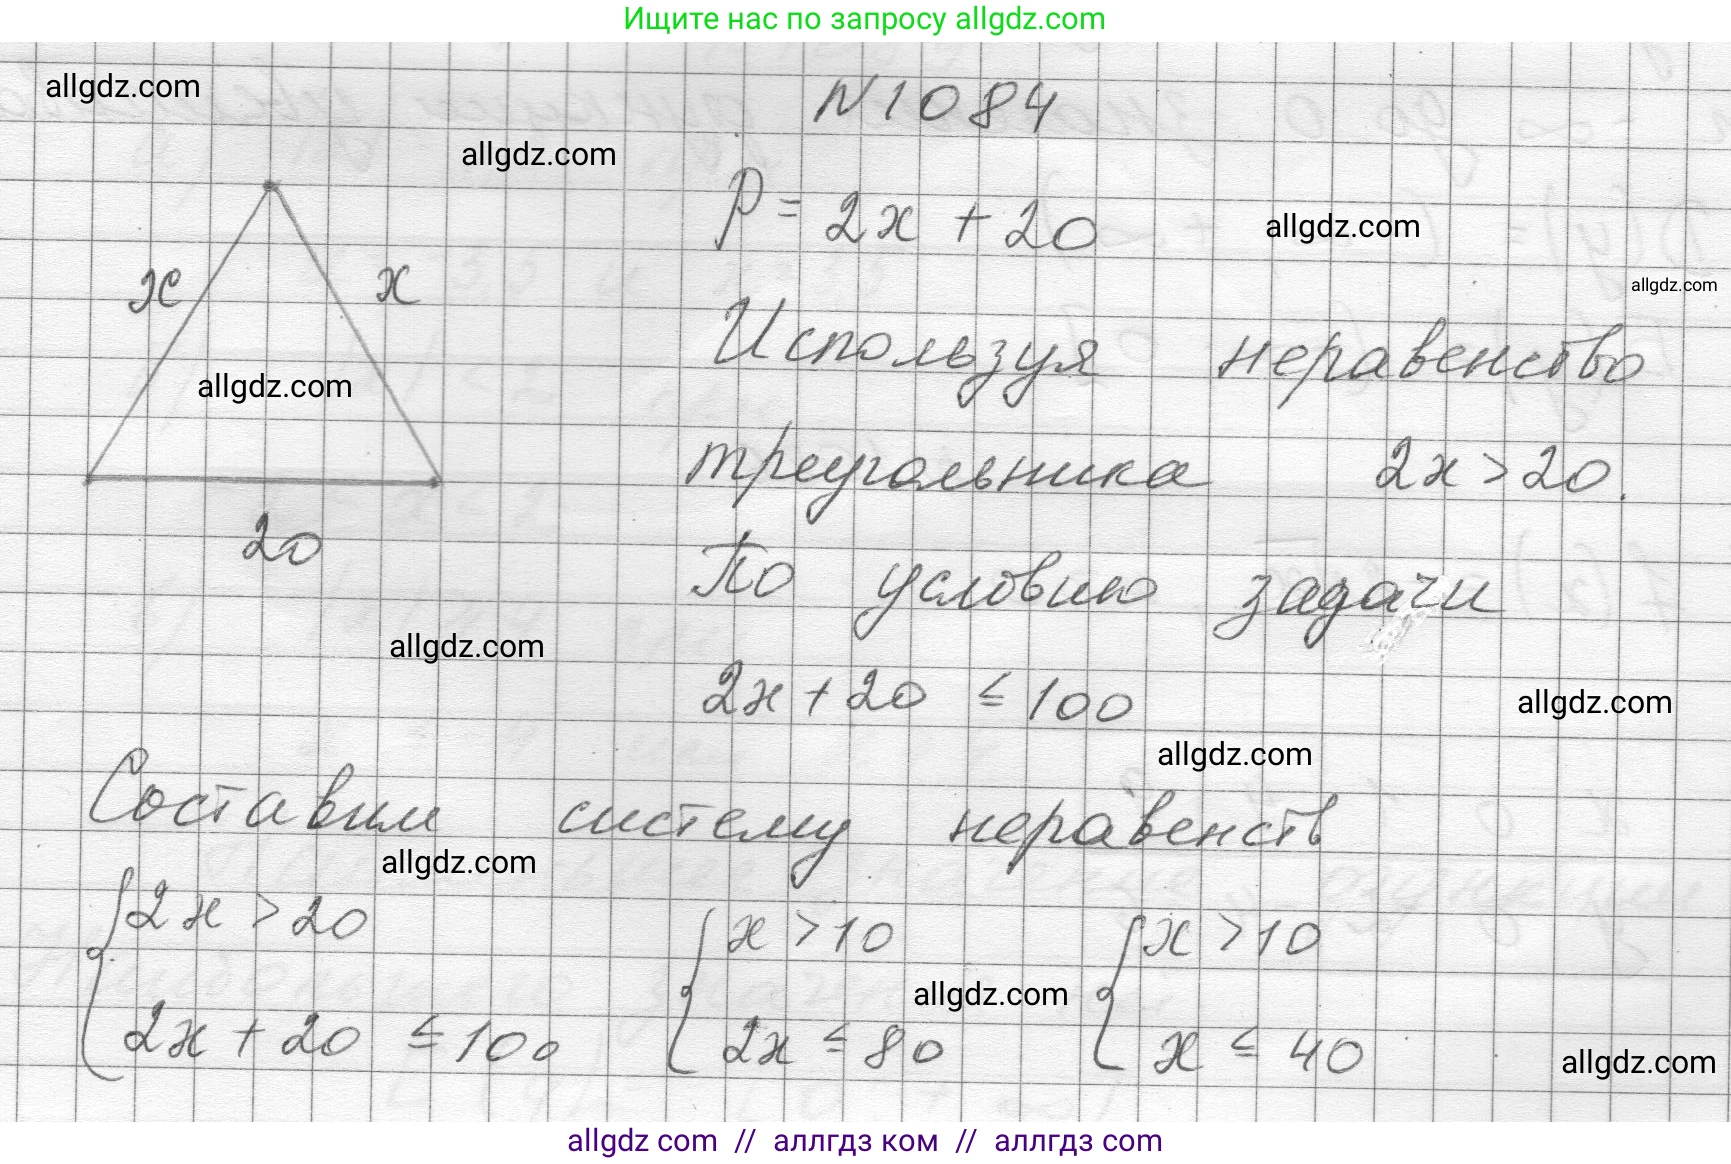 Ищите нас по запросу allgdz.com
allgdz.com
N1084
allgdz.com
P = 2x + 20
allgdz.com
x
x
allgdz.com
Используя неравенство
allgdz.com
треугольника 2x > 20.
20
По условию задачи
allgdz.com
2x + 20 ≤ 100
allgdz.com
allgdz.com
Составим систему неравенств
allgdz.com
{ 2x > 20 { x > 10 { x > 10
allgdz.com
2x + 20 ≤ 100 2x ≤ 80 x ≤ 40
allgdz.com
allgdz com // аллгдз ком // аллгдз com